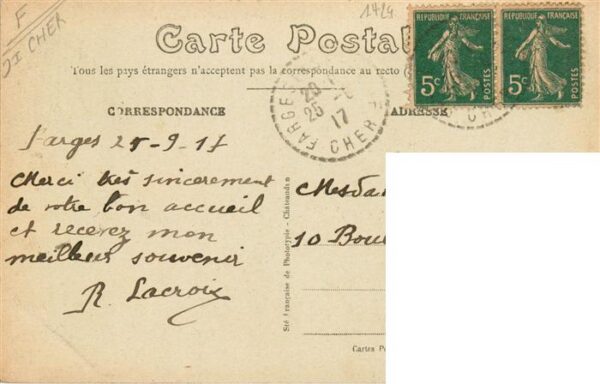 F
JI CHER
1424
Carte Postal
Tous les pays étrangers n'acceptent pas la correspondance au recto (
RÉPUBLIQUE FRANÇAISE
5c
POSTES
RÉPUBLIQUE FRANÇAISE
5c
POSTES
FARGES
25
17
CHER
CORRESPONDANCE
ADRESSE
Farges 25-9-17
Merci très sincerement
de votre bon accueil
et recevez mon
meilleur souvenir
R. Lacroix
Sté Française de Phototypie - Châteaudun
Mesda
10 Boul
Cartes P